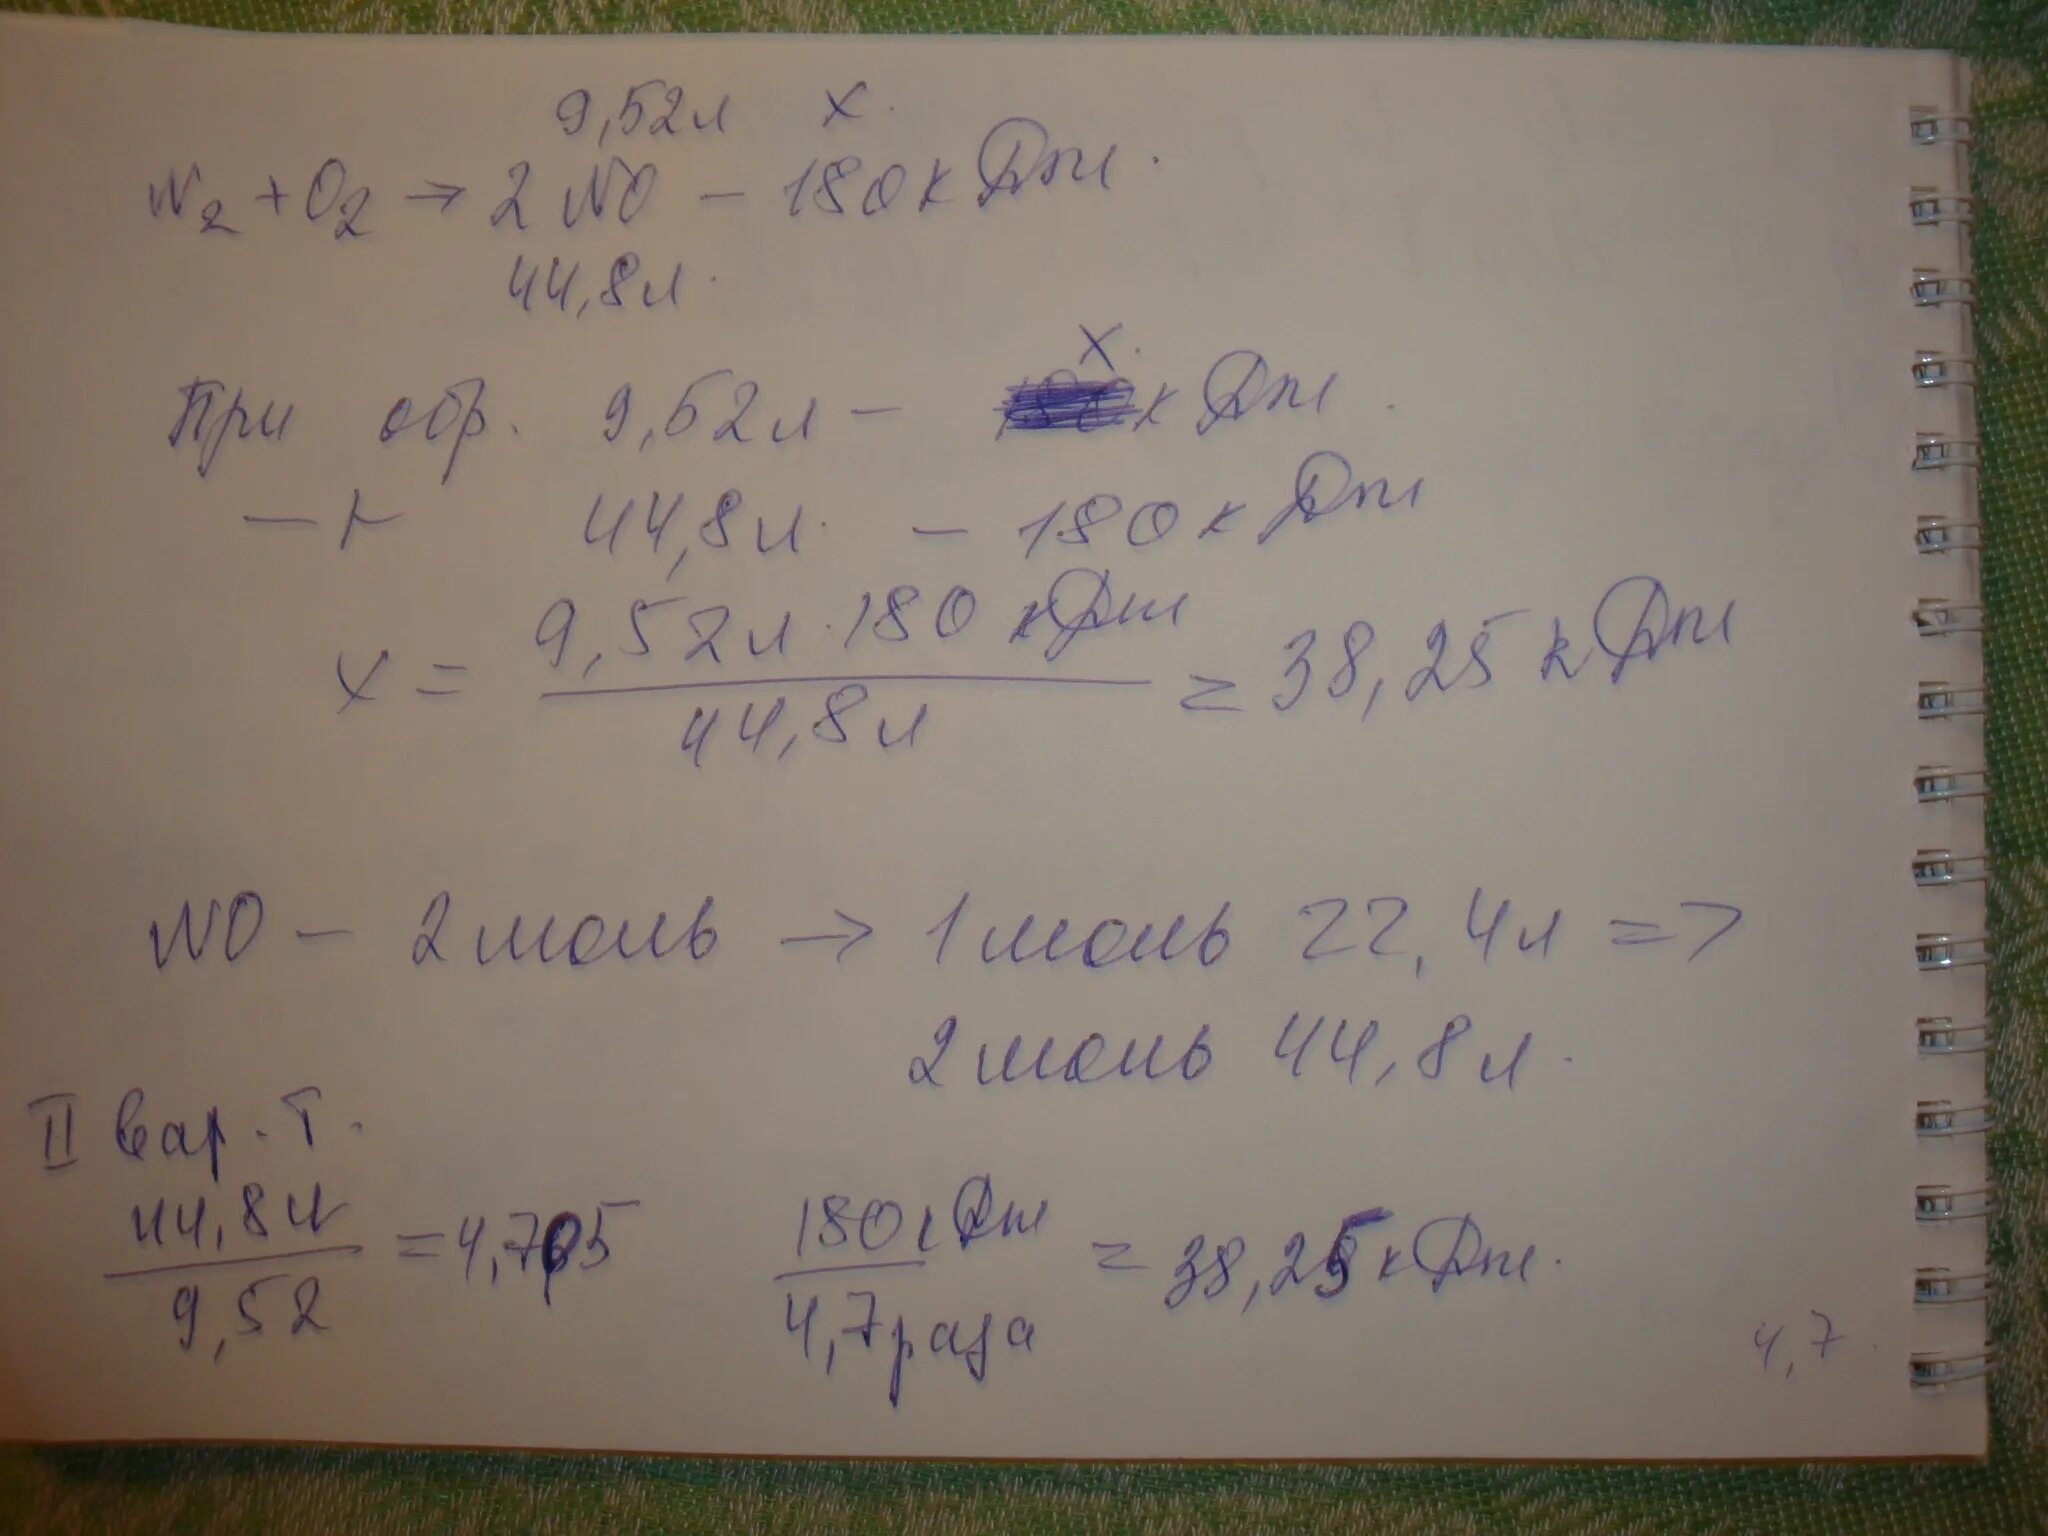 9,52л х.
N2 + O2 → 2 NO – 180 кДж.
44,8л.
х.
При обр. 9,52л – кДж.
—〃— 44,8л. – 180 кДж
х = 9,52л · 180 кДж / 44,8л = 38,25 кДж
NO – 2 моль → 1 моль 22,4л =>
2 моль 44,8л.
II вар. Т.
44,8л / 9,52 = 4,705 180 кДж / 4,7 раза = 38,25 кДж.
4,7